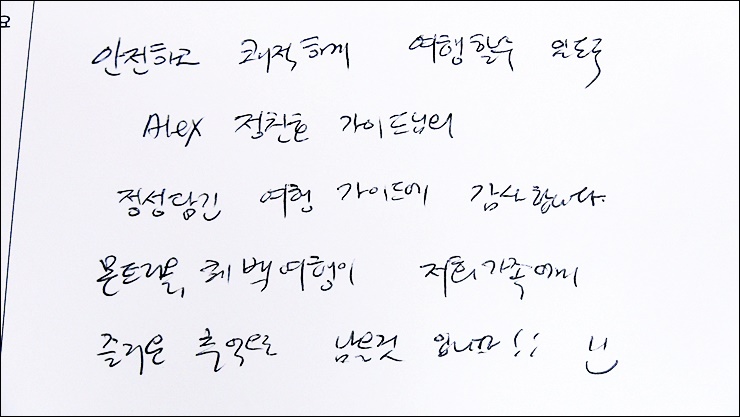 요
안전하고 쾌적하게 여행할수 있도록
Alex 정찬호 가이드님의
정성담긴 여행 가이드에 감사합니다.
몬트리올, 퀘백여행이 저희가족에게
즐거운 추억으로 남을것 입니다!!